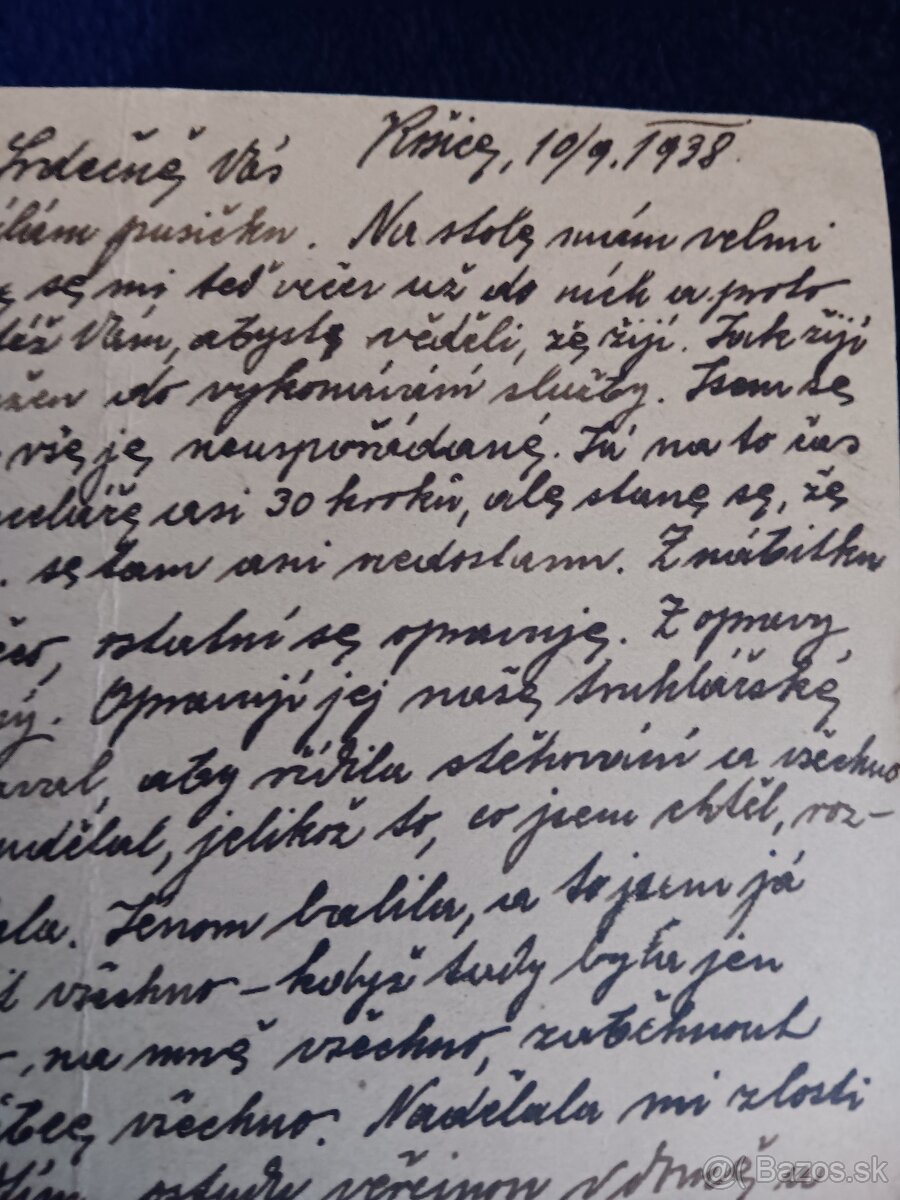 Srdečně Vás Košice, 10/9. 1938.
pusičku. Na stole mám velmi
se mi teď večer už do nich a proto
též Vám, abyste věděli, že žiji. Jak žiji
do vykonávání služby. Jsem se
vše je neuspořádané. Já na to čas
asi 30 kroků, ale stane se, že
se tam ani nedostanu. Z nábitku
ostatní se opravuje. Z opravy
Opravují jej naše truhlářské
aby řídila stěhování a všechno
udělat, jelikož to, co jsem chtěl, roz-
Jenom balila, a to jsem já
všechno - když tady byla jen
, na mně všechno, zatěhnout
všechno. Nadělala mi zlosti
ostudu veřejnou
Bazos.sk